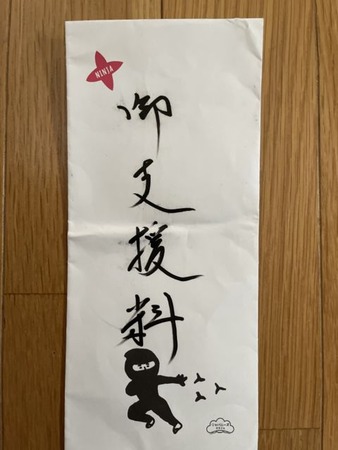 NINJA
御支援料